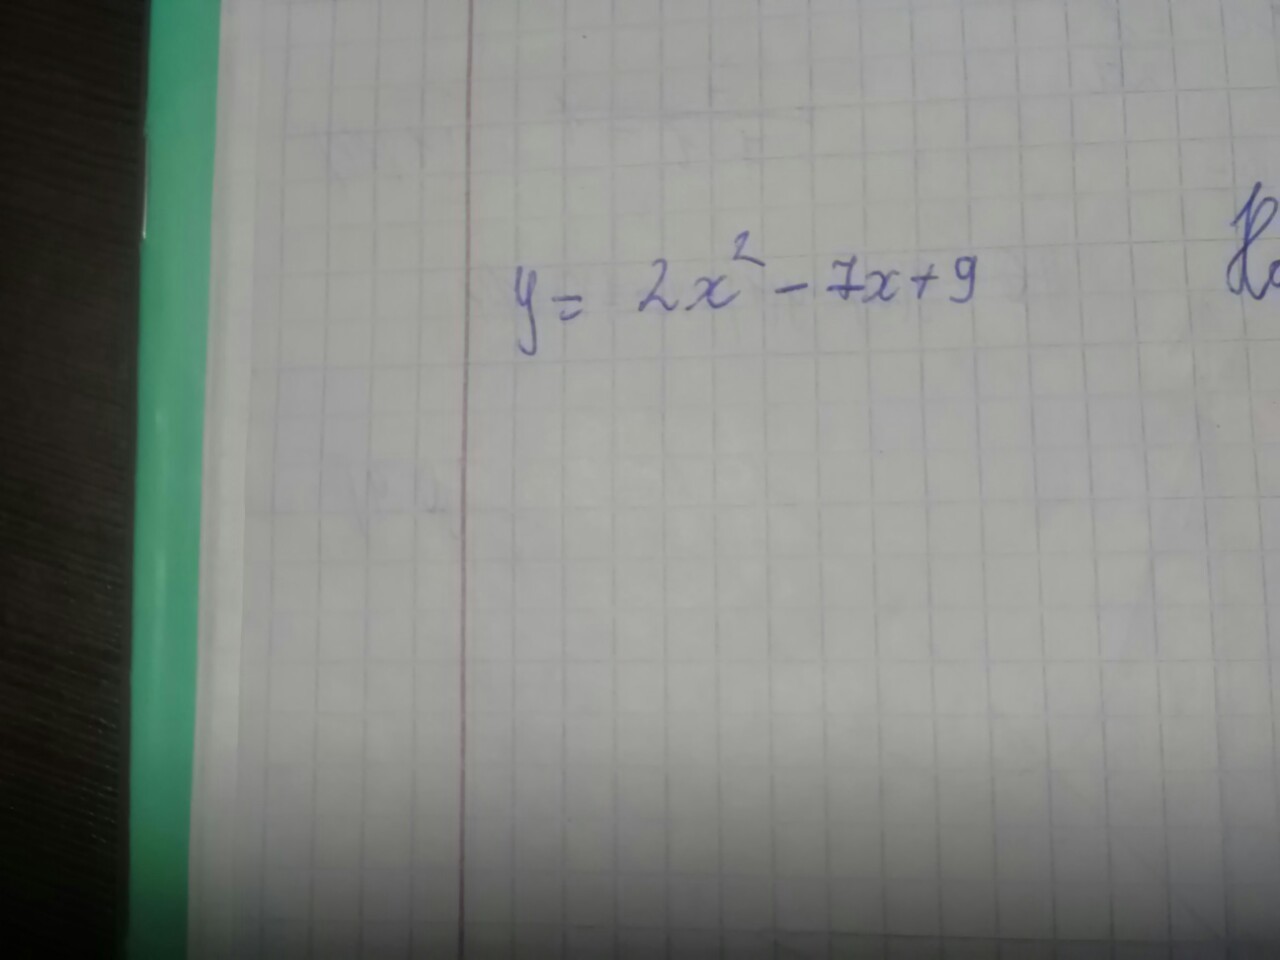 y = 2x² - 7x + 9